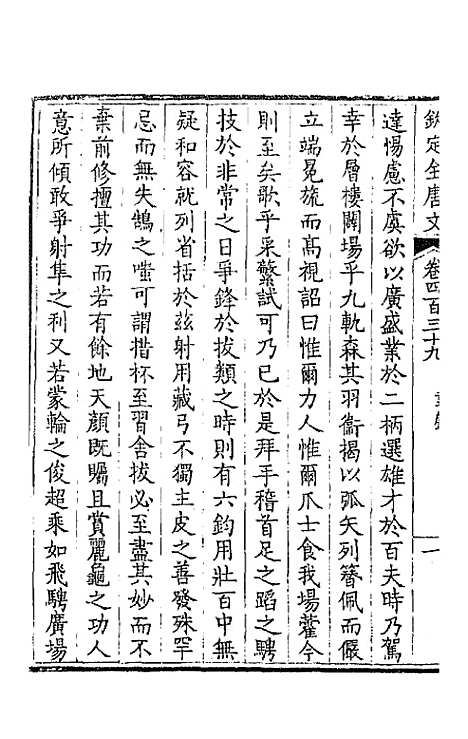 欽定全唐文
卷四百三十九
一
達惕慮不虞欲以廣盛業於二柄選雄才於百夫時乃駕
幸於層樓闢場乎九軌森其羽衛揭以弧矢列簪佩而儼
立端冕旒而高視詔曰惟爾力人惟爾爪士食我場藿今
則至矣歌乎采蘩試可乃已於是拜手稽首足之蹈之騁
技於非常之日爭鋒於拔類之時則有六鈞用壯百中無
疑和容就列省括於茲射用藏弓不獨主皮之善發殊罕
忌而無失鵠之嗤可謂措杯至習舍拔必至盡其妙而不
棄前修擅其功而若有餘地天顏既矚且賞麗龜之功人
意所傾敢爭射隼之利又若蒙輪之俊超乘如飛騁廣場